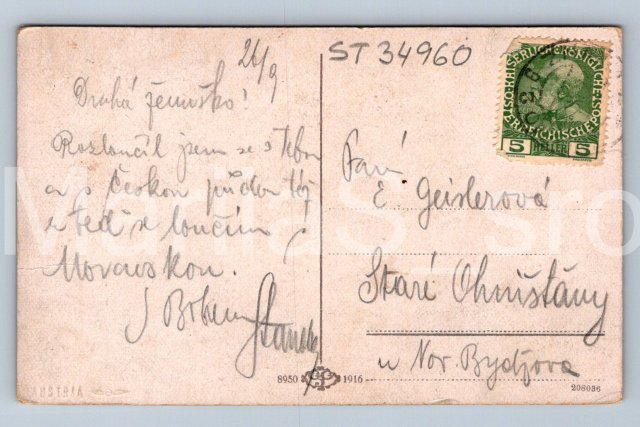 26/9
ST 34960
Drahá ženuško!
Rozloučil jsem se s Tebou
a s českou půdou též
a teď se loučím s
Moravskou.
S Bohem
Paní
E. Geislerová
Staré Ohnišťany
u Nov. Bydžova
KAISERLICHE KÖNIGLICHE
ÖSTERREICHISCHE POST
5 HELLER 5
8950 1916
208036